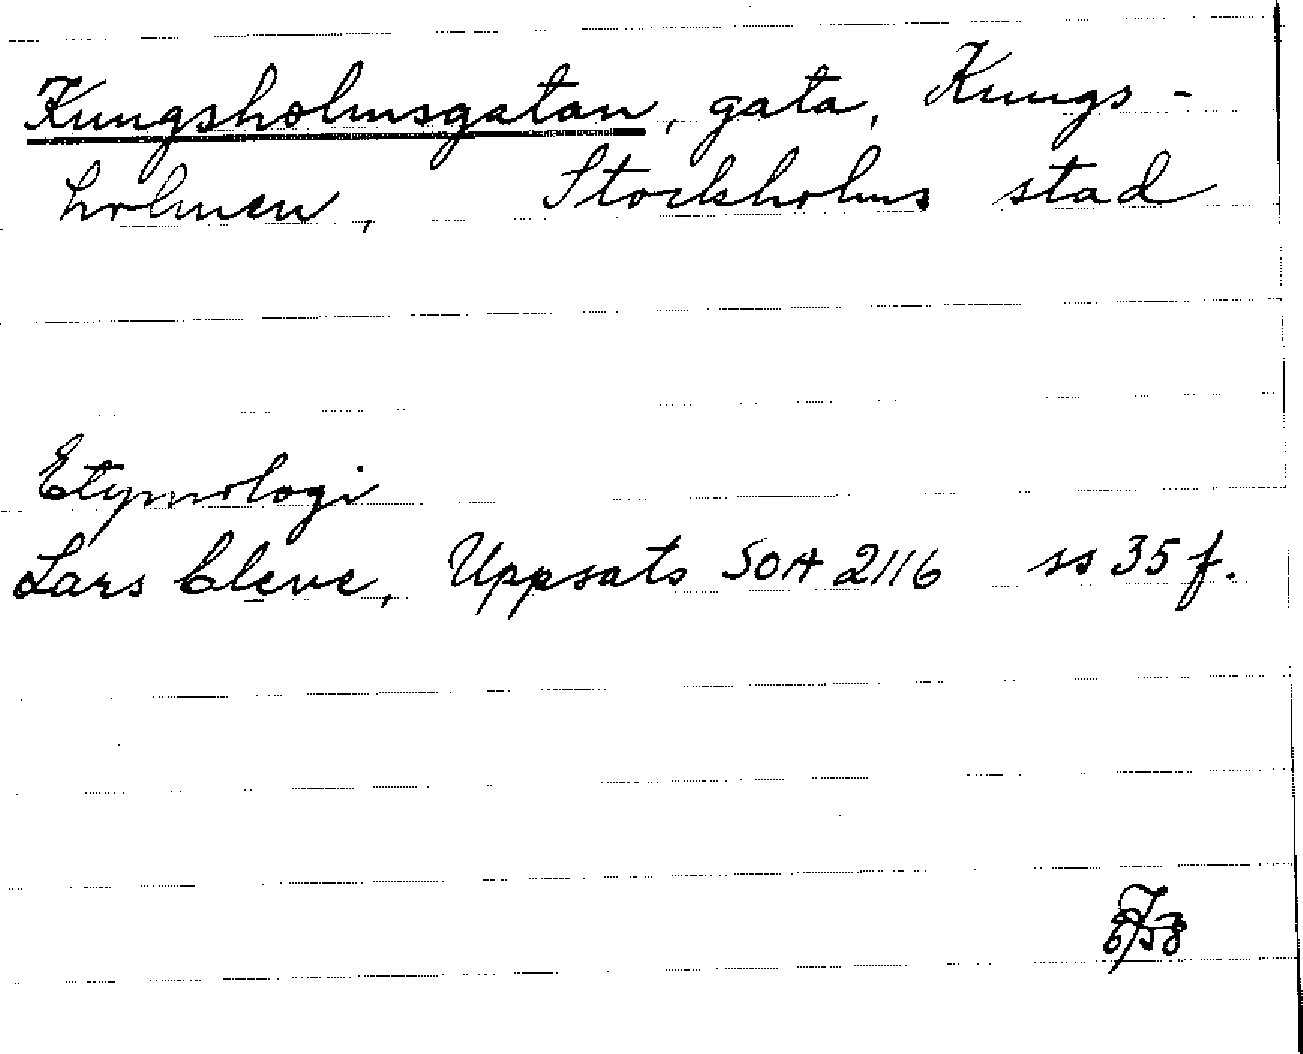 Kungsholmsgatan, gata, Kungs-
holmen, Stockholms stad
Etymologi
Lars Cleve, Uppsats SOA 2116 ss 35 f.